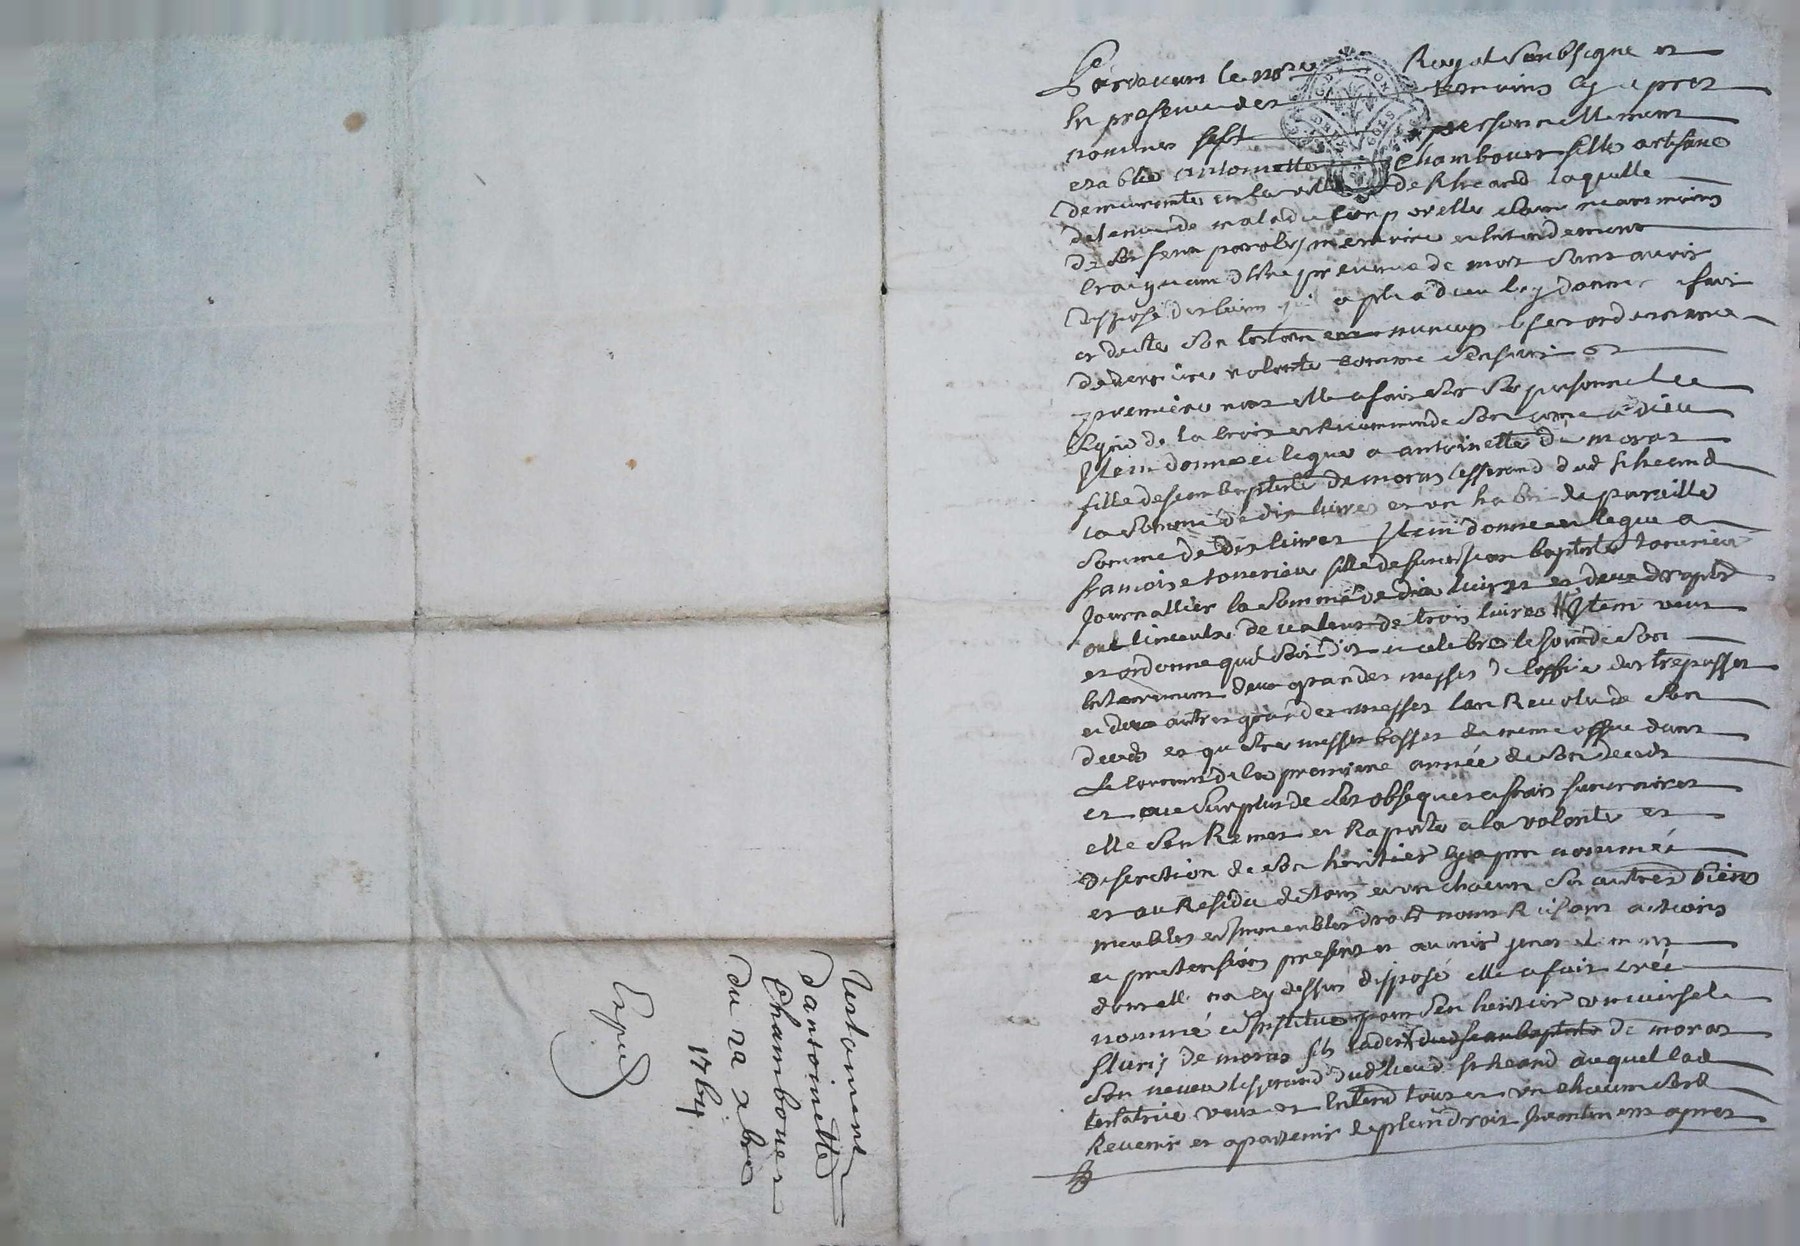 Pardevant le no.re Royal soubsigne et
En presence des temoins cy apres
nommes fust personnellement
etablie antoinette Chambouer fille artisane
demeurante en la ville de St heand laquelle
detenue de maladie corporelle etant neanmoins
de bon sens parolle, memoire et entendement
craignant d'etre prevenue de mort sans avoir
disposé des biens a plu a dieu luy donner a fait
et dicte son testament nuncup et ses ordonnance
de derniere volonte comme s'ensuit et
premierement elle a fait sur sa personne le
signe de la croix et Recommande son ame a dieu
Item donne et legue a antoinette de moras
fille de jean baptiste de moras tisserand dud St heand
la somme de dix livres et un habit de pareille
somme de dix livres Item donne et legue a
francoise tonnerieu fille de jean baptiste tonnerieu
Journallier la somme de dix livres et deux draps
ou linceulx de valeur de trois livres Item veut
et ordonne quil soit dit et celebré le jour de son
Enterrement deux grandes messes de l'office des trepasses
et deux autres grandes messes l'an Revolu de son
deceds et quatre messes basses du meme office dans
le courant de la premiere année de son deceds
et au surplus de ses obseques et frais funeraires
elle s'en Remet et Raporte a la volonte et
discretion de son heritier cy apres nommé
et au Residu de tous et un chacun ses autres biens
meubles et immeubles droits noms Raisons actions
et pretensions presents et avenir
dont elle n'a cy dessus disposé elle a fait creé
nommé et Institue pour son heritier universel
fleury de moras fils dud jean baptiste de moras
son neveu tisserand dud lieu de St heand auquel lad
testatrice veut et Entend tous et un chacun sesd
Revenir et apartenir de plein droit Incontinent apres
testament
d'antoinette
Chambouer
du 22 xbre
1764
Expedᵉ